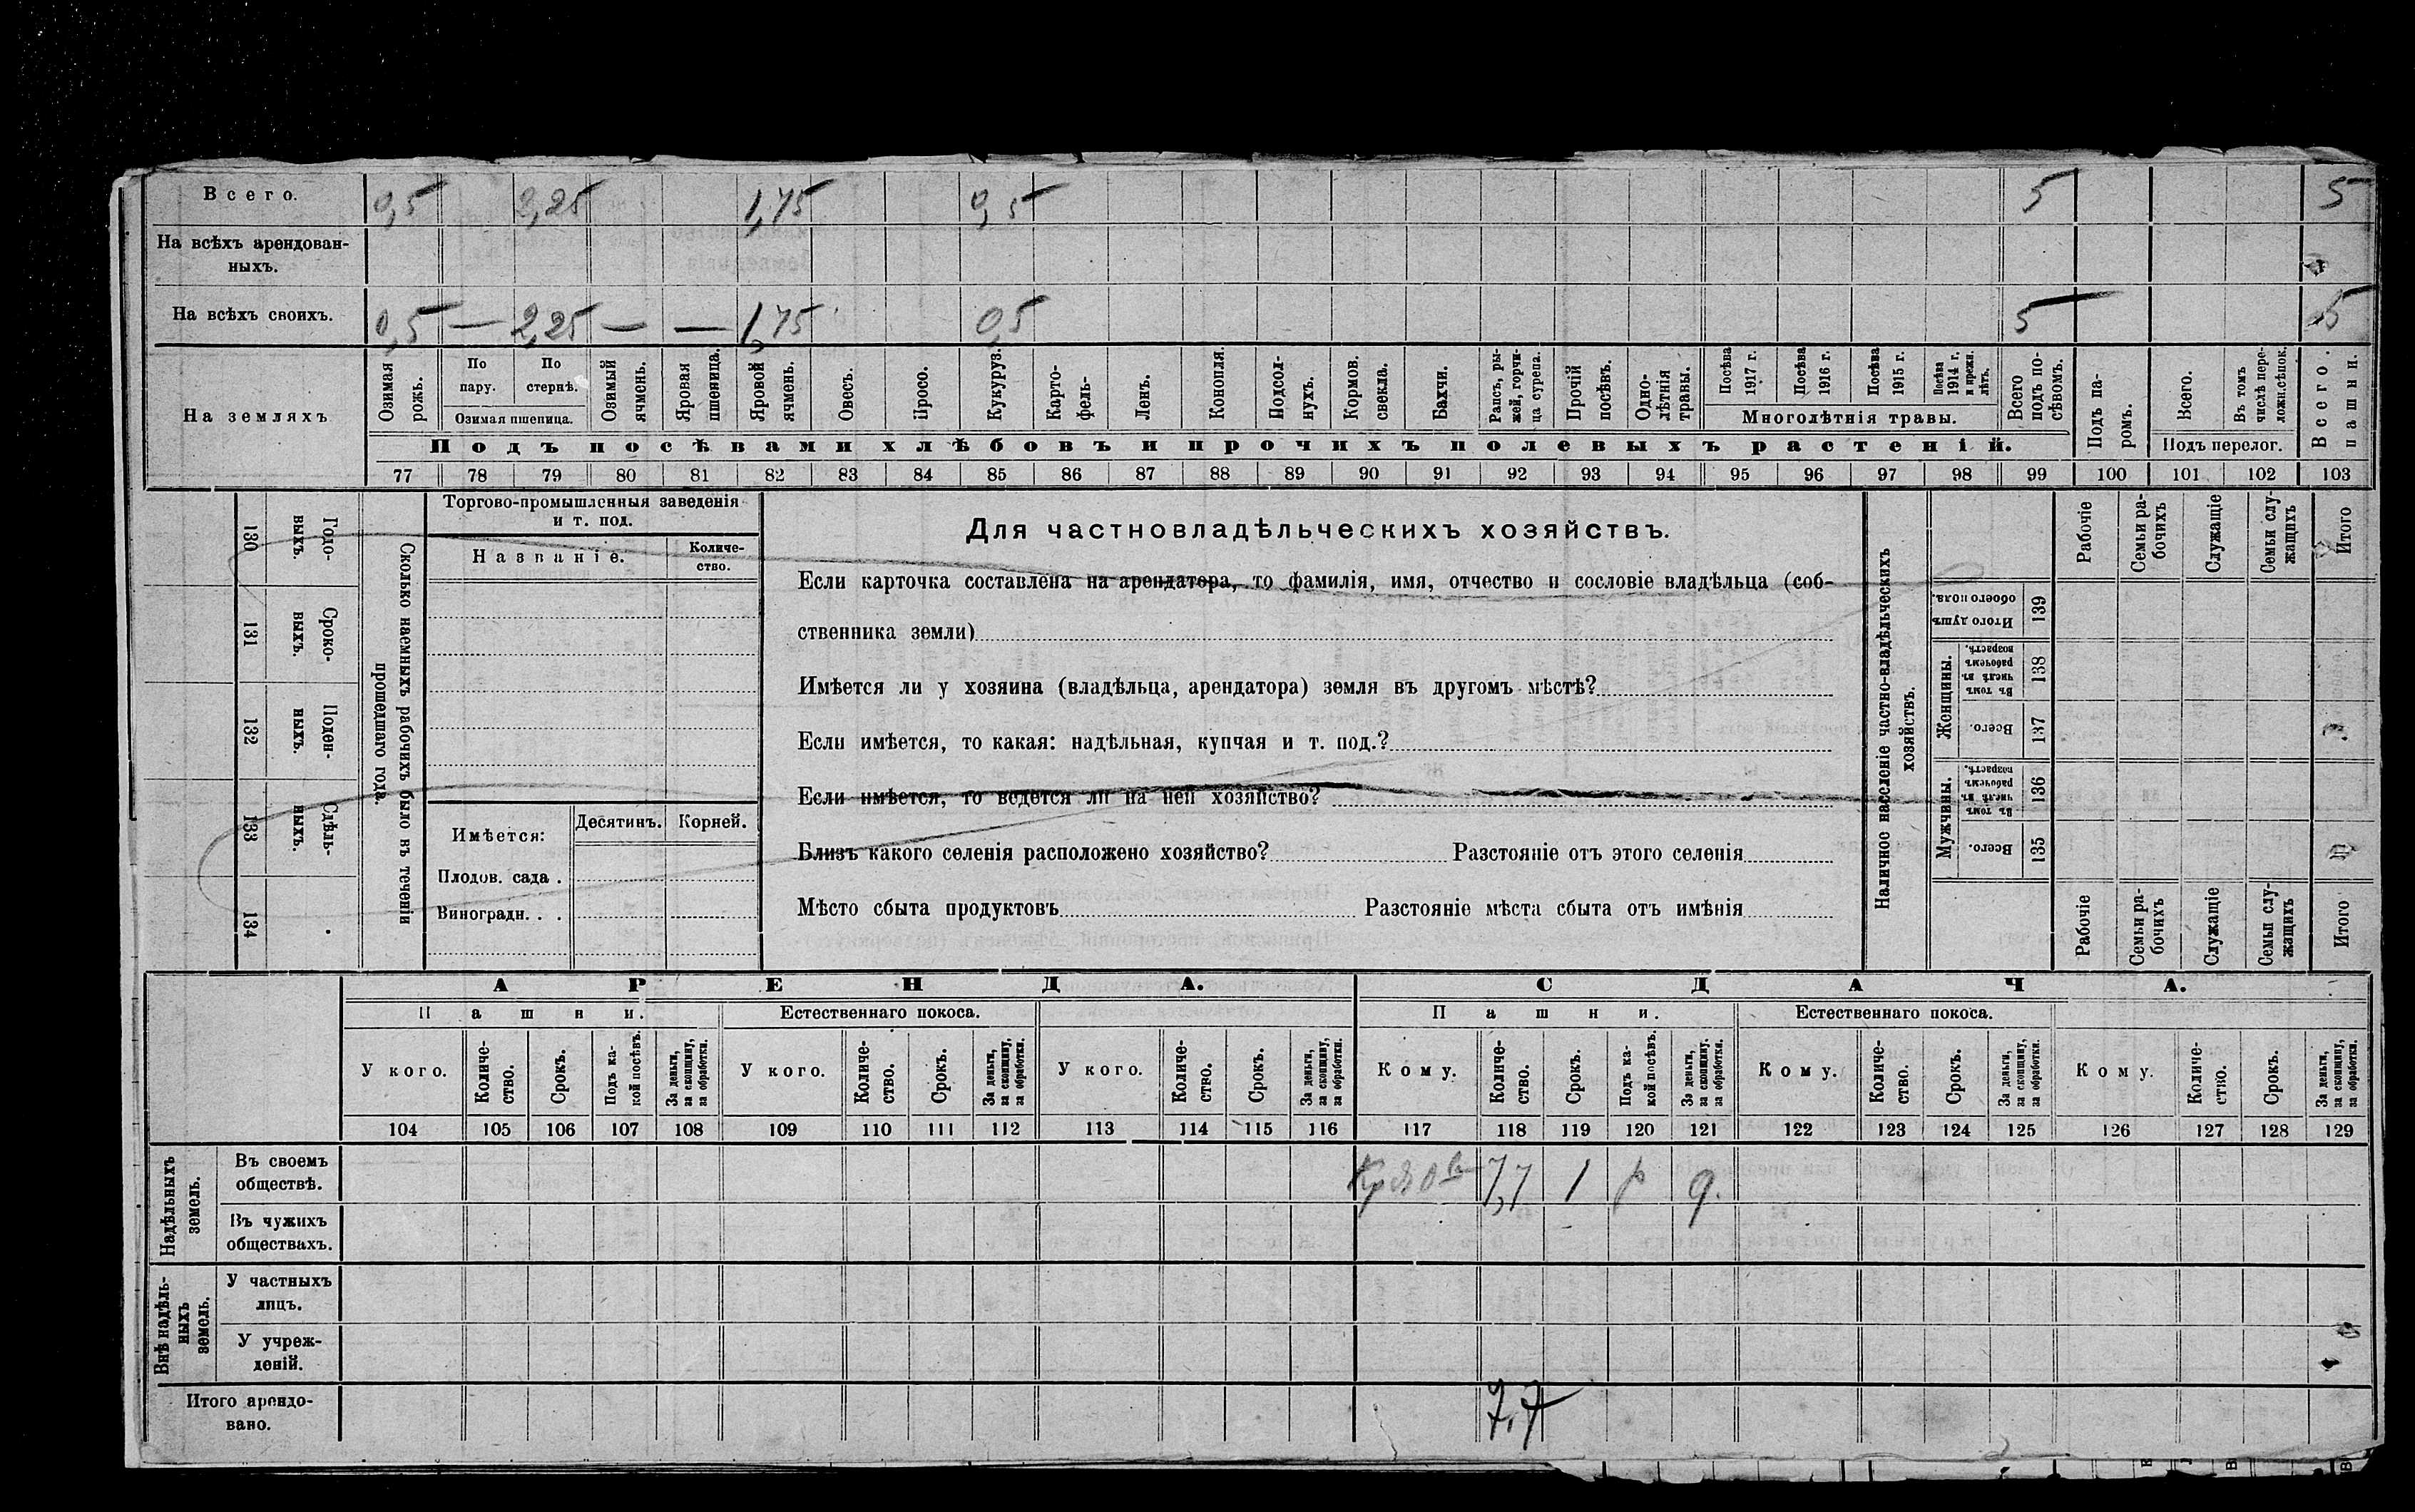 Всего. 0,5 2,25 1,75 0,5 5 5
На всѣхъ арендован-
ныхъ.
На всѣхъ своихъ. 0,5 — 2,25 — — 1,75 0,5 5 5
На земляхъ
Озимая рожь.
По пару.
По стернѣ.
Озимая пшеница.
Озимый ячмень.
Яровая пшеница.
Яровой ячмень.
Овесъ.
Просо.
Кукуруз.
Карто-
фель-
Ленъ.
Конопля.
Подсол-
нухъ.
Кормов.
свекла.
Бахчи.
Рапсъ, ры-
жей, горчи-
ца сурепа.
Прочій
посѣвъ.
Одно-
лѣтнія
травы.
Посѣва
1917 г.
Посѣва
1916 г.
Посѣва
1915 г.
Посѣва
1914 г.
и прежн.
лѣтъ.
Многолѣтнія травы.
Всего
подъ по-
сѣвомъ.
Подъ па-
ромъ.
Всего.
Въ томъ
числѣ пере-
ложн.сѣнок.
Подъ перелог.
Всего
пашни.
Подъ посѣвами хлѣбовъ и прочихъ полевыхъ растеній.
77 78 79 80 81 82 83 84 85 86 87 88 89 90 91 92 93 94 95 96 97 98 99 100 101 102 103
130 Годо-
выхъ.
131 Сроко-
выхъ.
132 Поден-
ныхъ.
133 Сдѣль-
ныхъ.
134
Сколько наемныхъ рабочихъ было въ теченіи
прошедшаго года.
Торгово-промышленныя заведенія
и т. под.
Названіе.
Количе-
ство.
Имѣется:
Десятинъ. Корней.
Плодов. сада .
Виноградн. . .
Для частновладѣльческихъ хозяйствъ.
Если карточка составлена на арендатора, то фамилія, имя, отчество и сословіе владѣльца (соб-
ственника земли)
Имѣется ли у хозяина (владѣльца, арендатора) земля въ другомъ мѣстѣ?
Если имѣется, то какая: надѣльная, купчая и т. под.?
Если имѣется, то ведется ли на ней хозяйство?
Близъ какого селенія расположено хозяйство? Разстояніе отъ этого селенія
Мѣсто сбыта продуктовъ Разстояніе мѣста сбыта отъ имѣнія
Наличное населеніе частно-владѣльческихъ
хозяйствъ.
Рабочіе
Семьи ра-
бочихъ
Служащіе
Семьи слу-
жащихъ
Итого
Итого душъ
обоего пола.
139
Женщины.
Въ томъ
числѣ въ
рабочемъ
возрастѣ.
138
Всего.
137
Мужчины.
Въ томъ
числѣ въ
рабочемъ
возрастѣ.
136
Всего.
135
Рабочіе
Семьи ра-
бочихъ
Служащіе
Семьи слу-
жащихъ
Итого
АРЕНДА. СДАЧА.
Пашни. Естественнаго покоса. Пашни. Естественнаго покоса.
У кого.
Количе-
ство.
Срокъ.
Подъ ка-
кой посѣвъ.
За деньги,
за скопщину,
за обработки.
У кого.
Количе-
ство.
Срокъ.
За деньги,
за скопщину,
за обработки.
У кого.
Количе-
ство.
Срокъ.
За деньги,
за скопщину,
за обработки.
Кому.
Количе-
ство.
Срокъ.
Подъ ка-
кой посѣвъ.
За деньги,
за скопщину,
за обработки.
Кому.
Количе-
ство.
Срокъ.
За деньги,
за скопщину,
за обработки.
Кому.
Количе-
ство.
Срокъ.
За деньги,
за скопщину,
за обработки.
104 105 106 107 108 109 110 111 112 113 114 115 116 117 118 119 120 121 122 123 124 125 126 127 128 129
Надѣльныхъ
земель.
Въ своемъ
обществѣ.
7,7 1 р д.
Въ чужихъ
обществахъ.
Внѣ надѣль-
ныхъ
земель.
У частныхъ
лицъ.
У учреж-
деній.
Итого арендо-
вано.
7,7